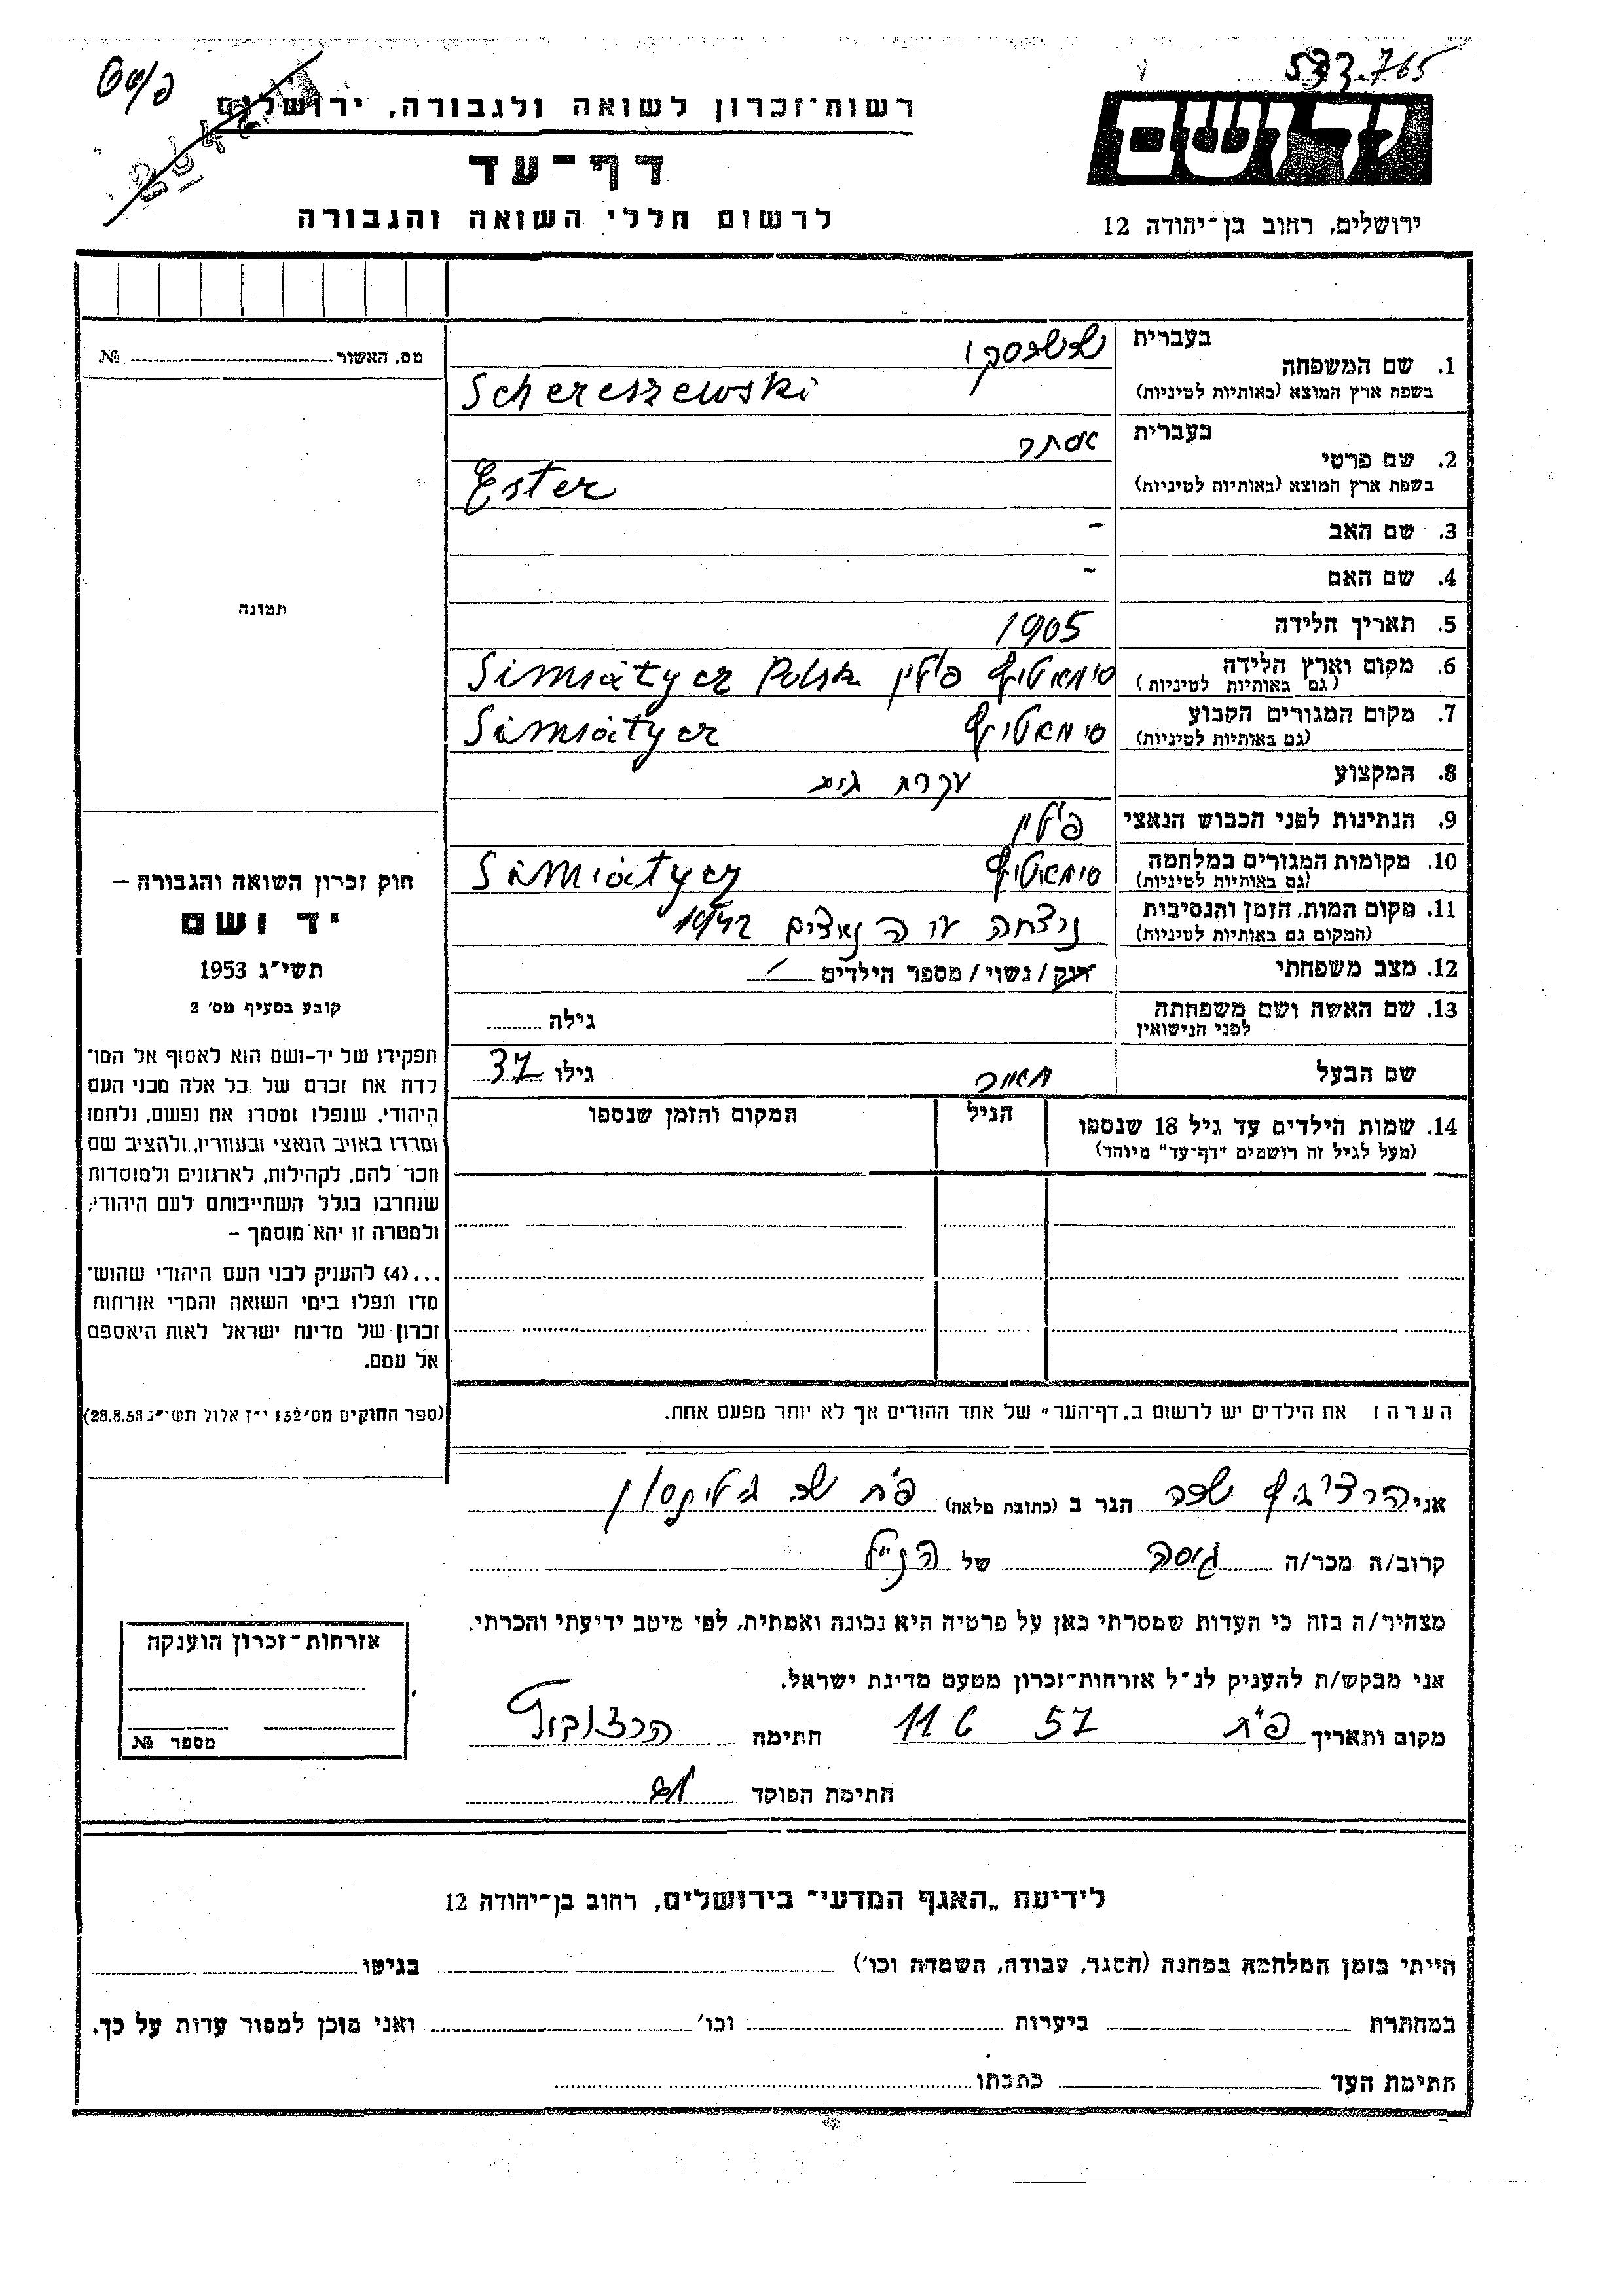 533.765
רשות-זכרון לשואה ולגבורה, ירושלים
יד ושם
דף-עד
לרשום חללי השואה והגבורה
ירושלים, רחוב בן-יהודה 12
מס. האשור №
1. שם המשפחה
בעברית
בשפת ארץ המוצא (באותיות לטיניות)
Schereszewski
2. שם פרטי
בעברית אסתר
בשפת ארץ המוצא (באותיות לטיניות)
Ester
3. שם האב -
4. שם האם -
תמונה
5. תאריך הלידה 1905
6. מקום וארץ הלידה
(גם באותיות לטיניות) סימאטיץ פולין Simiàtycz Polska
7. מקום המגורים הקבוע
(גם באותיות לטיניות) סימאטיץ Simiàtycz
8. המקצוע עקרת בית
9. הנתינות לפני הכבוש הנאצי פולין
10. מקומות המגורים במלחמה
(גם באותיות לטיניות) סימאטיץ Simiàtycz
11. מקום המות, הזמן והנסיבות
(המקום גם באותיות לטיניות) נרצחה ע"י הנאצים 1942
12. מצב משפחתי רוק/נשוי/ מספר הילדים
13. שם האשה ושם משפחתה
לפני הנישואין גילה
שם הבעל מאיר גילו 37
14. שמות הילדים עד גיל 18 שנספו
(מעל לגיל זה רושמים "דף-עד" מיוחד)
הגיל
המקום והזמן שנספו
הערה: את הילדים יש לרשום ב„דף-העד" של אחד ההורים אך לא יותר מפעם אחת.
חוק זכרון השואה והגבורה –
יד ושם
תשי"ג 1953
קובע בסעיף מס' 2
תפקידו של יד-ושם הוא לאסוף אל המו־
לדת את זכרם של כל אלה מבני העם
היהודי, שנפלו ומסרו את נפשם, נלחמו
ומרדו באויב הנאצי ובעוזריו, ולהציב שם
וזכר להם, לקהילות, לארגונים ולמוסדות
שנחרבו בגלל השתייכותם לעם היהודי;
ולמטרה זו יהא מוסמך –
...(4) להעניק לבני העם היהודי שהוש־
מדו ונפלו בימי השואה והמרי אזרחות
זכרון של מדינת ישראל לאות היאספם
אל עמם.
(ספר החוקים מס' 132 י"ז אלול תשי"ג 28.8.53)
אני הגר ב (כתובת מלאה) פ"ת
קרוב/ה מכר/ה גיסה של הנ"ל
מצהיר/ה בזה כי העדות שמסרתי כאן על פרטיה היא נכונה ואמתית, לפי מיטב ידיעתי והכרתי.
אני מבקש/ת להעניק לנ"ל אזרחות-זכרון מטעם מדינת ישראל.
מקום ותאריך פ"ת 11 6 57 חתימה
חתימת הפוקד
אזרחות-זכרון הוענקה
מספר №
לידיעת „האגף המדעי" בירושלים, רחוב בן-יהודה 12
הייתי בזמן המלחמה במחנה (הסגר, עבודה, השמדה וכו') בגיטו
במחתרת ביערות וכו' ואני מוכן למסור עדות על כך.
חתימת העד כתבתו